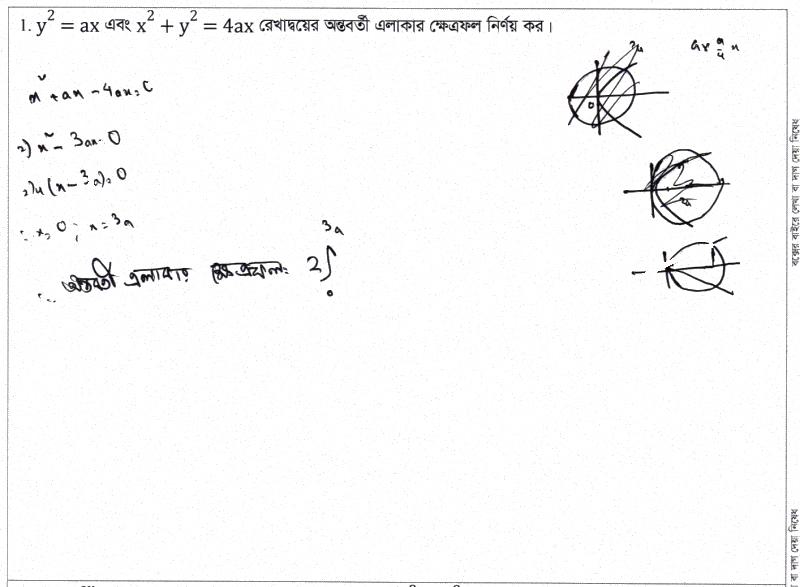 1. y² = ax এবং x² + y² = 4ax রেখাদ্বয়ের অন্তবর্তী এলাকার ক্ষেত্রফল নির্ণয় কর।
x² + ax - 4ax = 0
⇒) x² - 3ax = 0
⇒ x(x - 3a) = 0
∴ x = 0; x = 3a
∴ অন্তবর্তী এলাকার ক্ষেত্রফল = 2∫
3a
0
3a
0
বক্সের বাইরে লেখা বা দাগ দেয়া নিষেধ
বা দাগ দেয়া নিষেধ